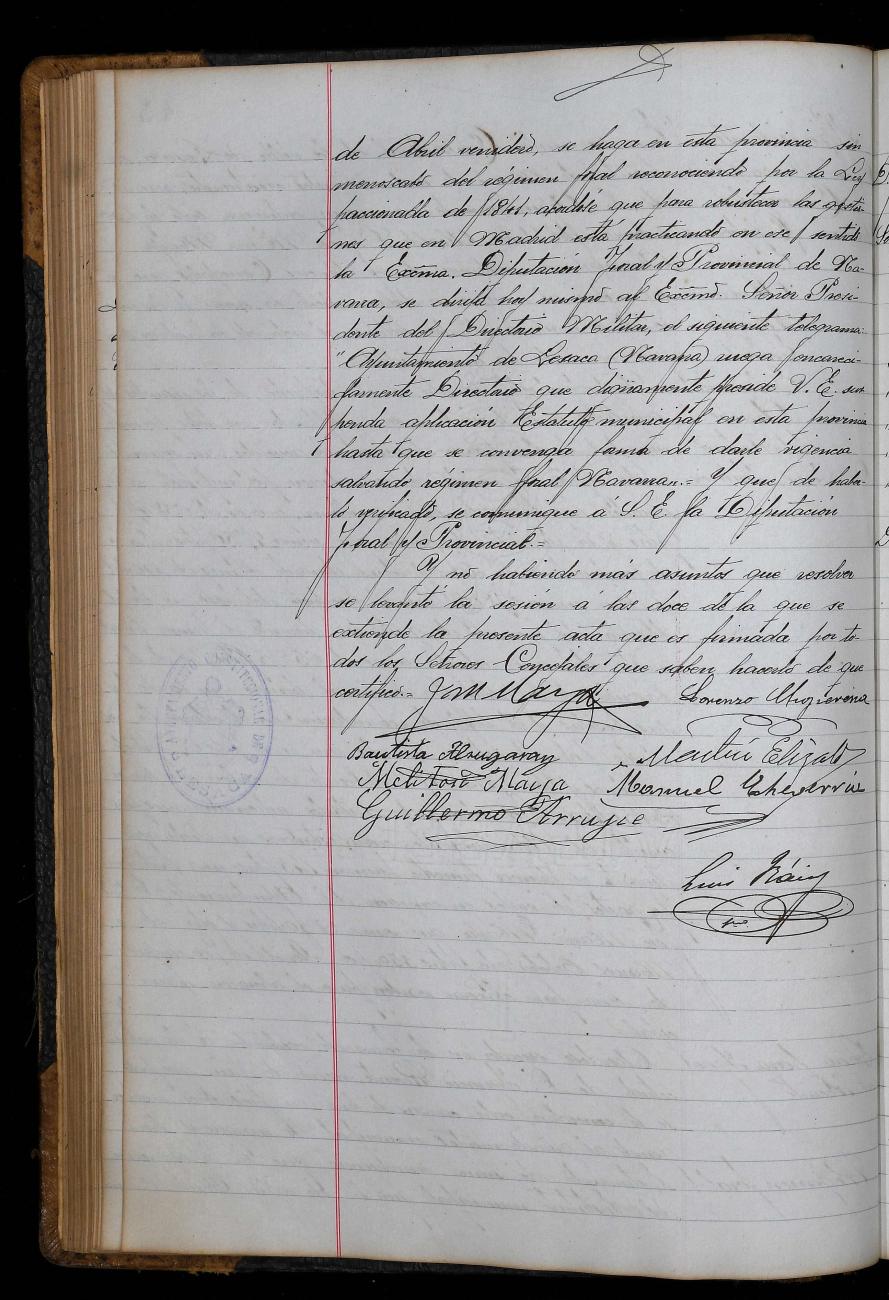 de Abril venidero, se haga en esta provincia sin
menoscabo del régimen foral reconocido por la Ley
paccionada de 1841, acordóse que para robustecer las gestio-
nes que en Madrid está practicando en ese sentido
la Excma. Diputación Foral y Provincial de Na-
varra, se dirija hoy mismo al Excmo. Señor Presi-
dente del Directorio Militar, el siguiente telegrama:
"Ayuntamiento de Lesaca (Navarra) ruega encareci-
damente Directorio que dignamente preside V.E. sus-
penda aplicación Estatuto municipal en esta provincia
hasta que se convenga forma de darle vigencia
salvando régimen foral Navarra".= Y que de haber-
lo verificado, se comunique á S. E. la Diputación
foral y Provincial.=
Y nó habiendo más asuntos que resolver
se levantó la sesión á las doce de la que se
extiende la presente acta que es firmada por to-
dos los Señores Concejales que saben hacerlo de que
certifico.= José M Maya Lorenzo
Bautista Alzugaray Martín Elizalde
Meliton Maya Manuel Echeverría
Guillermo Arruyie
Luis
AYUNTAMIENTO CONSTITUCIONAL DE